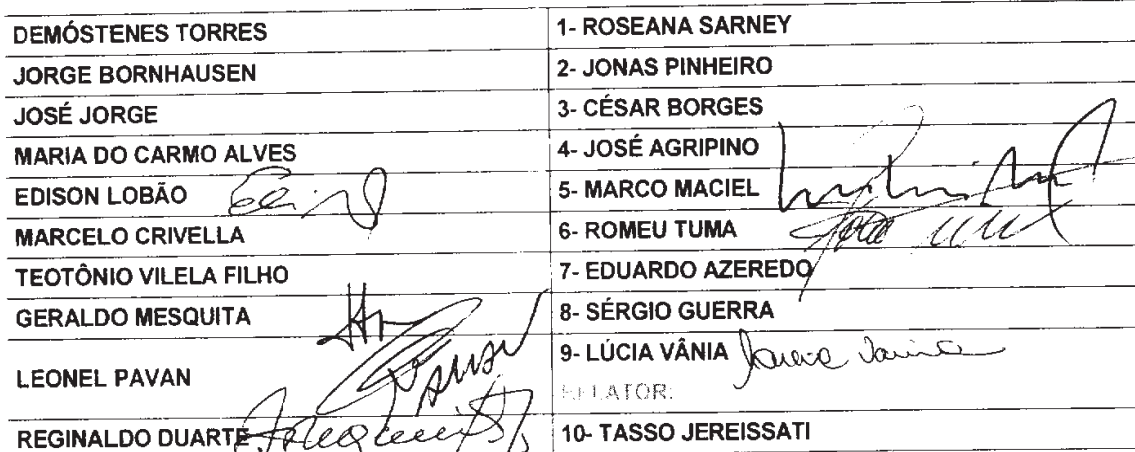 DEMÓSTENES TORRES 1- ROSEANA SARNEY
JORGE BORNHAUSEN 2- JONAS PINHEIRO
JOSÉ JORGE 3- CÉSAR BORGES
MARIA DO CARMO ALVES 4- JOSÉ AGRIPINO
EDISON LOBÃO 5- MARCO MACIEL
MARCELO CRIVELLA 6- ROMEU TUMA
TEOTÔNIO VILELA FILHO 7- EDUARDO AZEREDO
GERALDO MESQUITA 8- SÉRGIO GUERRA
LEONEL PAVAN 9- LÚCIA VÂNIA
RELATOR:
REGINALDO DUARTE 10- TASSO JEREISSATI